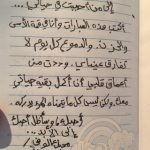 إلى من أحببت في حياتي ...
أكتب هذه العبارات وأنا في قمة الأسى
والحزن .. والدموع كل يوم لا
تفارق عيناي .. وددت من
أعماق قلبي أن أكمل بقية حياتي
معك .. ولكن ليس كل ما يتمناه المرء يدركه
أحبك وسأظل أحبك
إلى الأبد ..